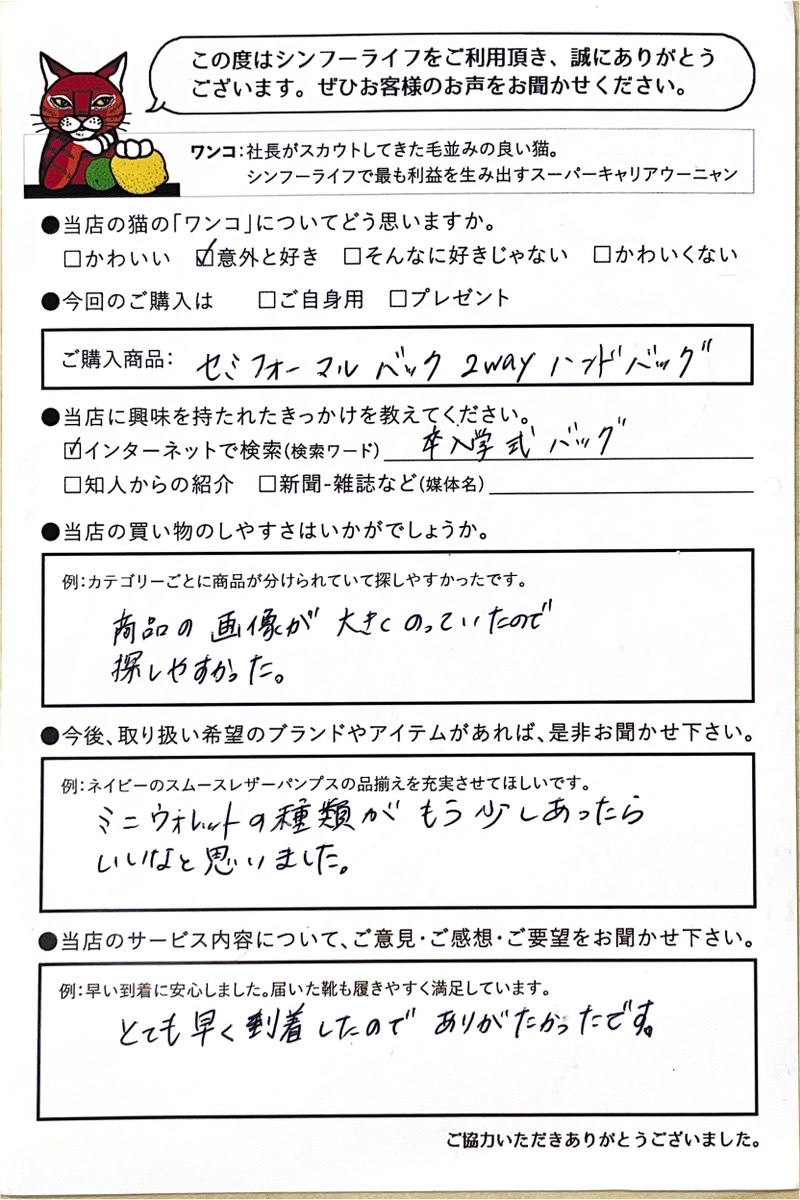 この度はシンフーライフをご利用頂き、誠にありがとう
ございます。ぜひお客様のお声をお聞かせください。
ワンコ:社長がスカウトしてきた毛並みの良い猫。
シンフーライフで最も利益を生み出すスーパーキャリアウーニャン
●当店の猫の「ワンコ」についてどう思いますか。
□かわいい ☑意外と好き □そんなに好きじゃない □かわいくない
●今回のご購入は □ご自身用 □プレゼント
ご購入商品: セミフォーマル バック 2way ハンドバッグ
●当店に興味を持たれたきっかけを教えてください。
☑インターネットで検索(検索ワード) 卒入学式 バッグ
□知人からの紹介 □新聞-雑誌など(媒体名)
●当店の買い物のしやすさはいかがでしょうか。
例:カテゴリーごとに商品が分けられていて探しやすかったです。
商品の画像が大きくのっていたので
探しやすかった。
●今後、取り扱い希望のブランドやアイテムがあれば、是非お聞かせ下さい。
例:ネイビーのスムースレザーパンプスの品揃えを充実させてほしいです。
ミニウォレットの種類がもう少しあったら
いいなと思いました。
●当店のサービス内容について、ご意見・ご感想・ご要望をお聞かせ下さい。
例:早い到着に安心しました。届いた靴も履きやすく満足しています。
とても早く到着したのでありがたかったです。
ご協力いただきありがとうございました。